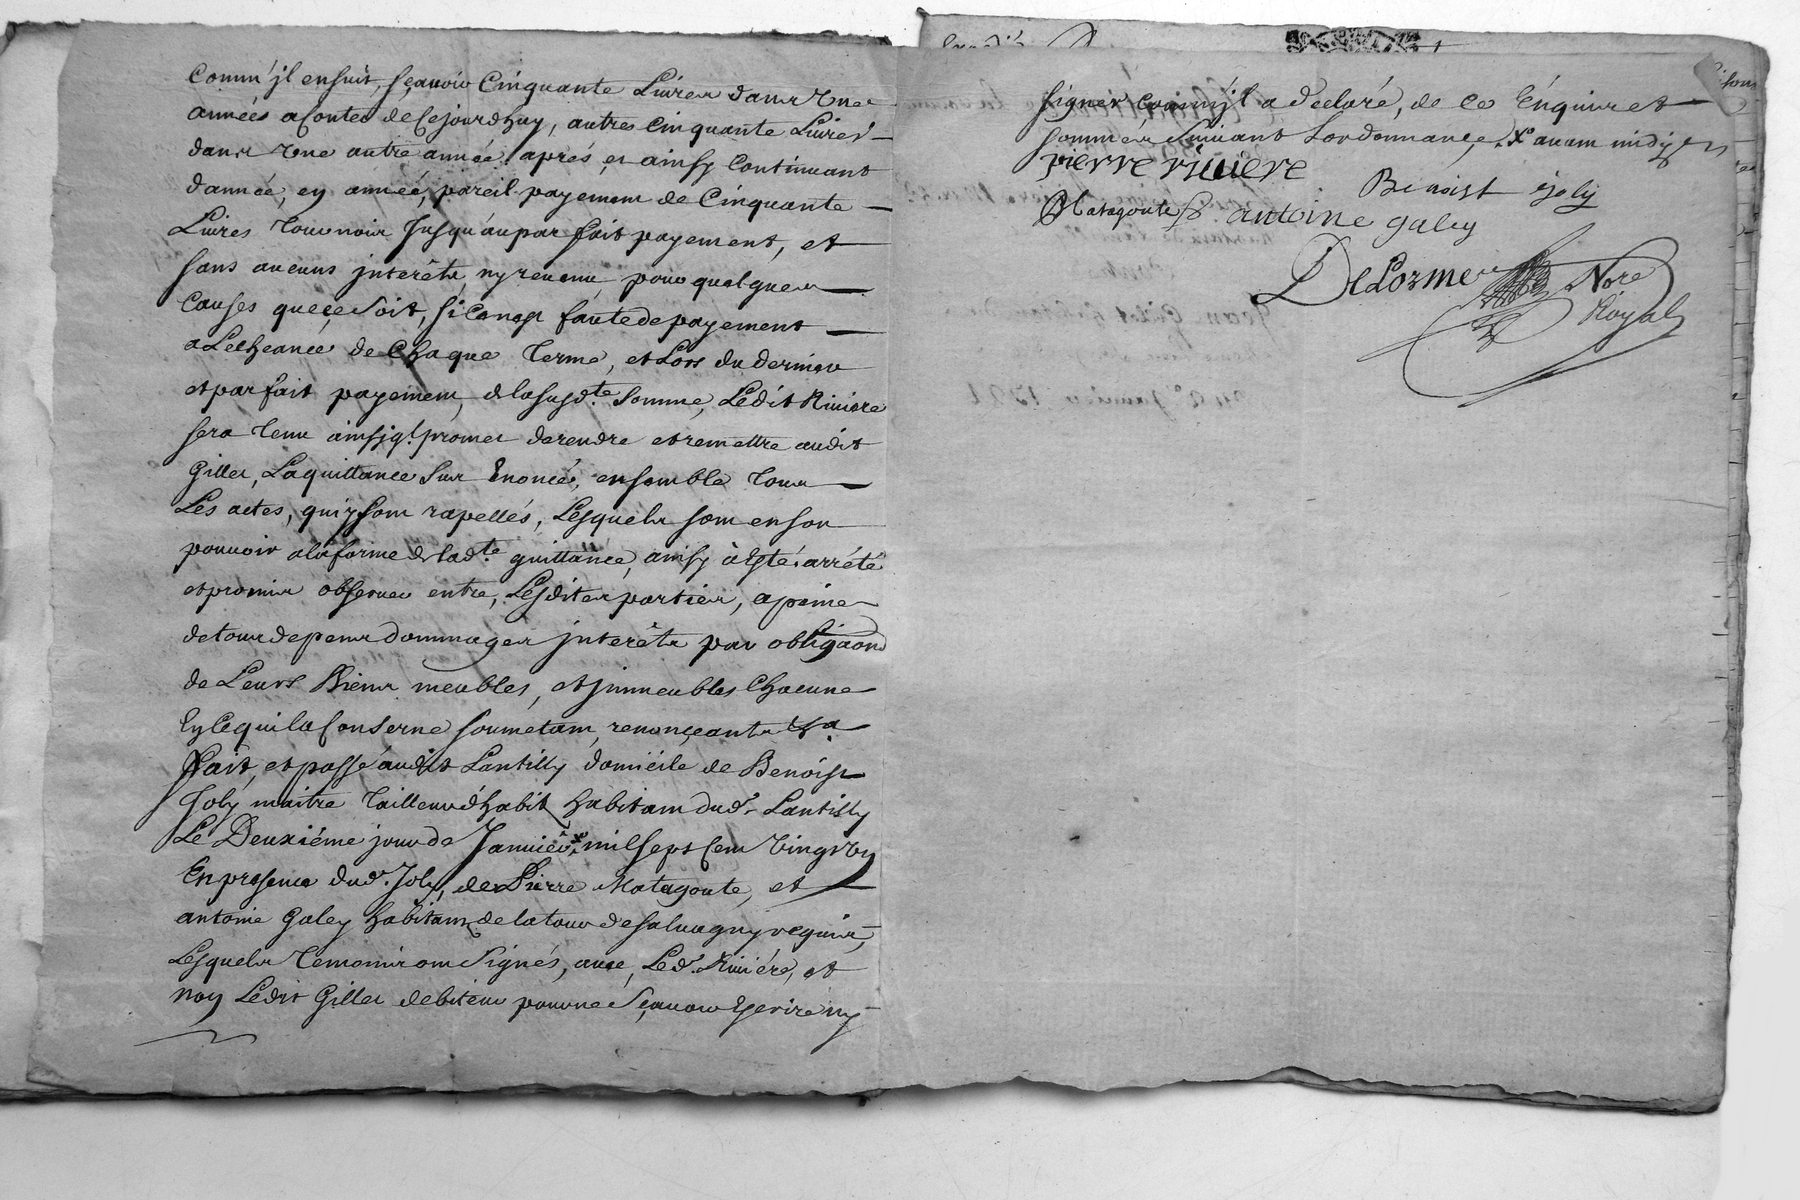 Comm'jl ensuit, sçauoir Cinquante Liures dans Vne
années aContes de Cejourdhuy, autres Cinquante Liures
dans Vne autre année aprés, et ainsy Continuant
dannée, en année, pareil payement de Cinquante
Liures Tournois Jusqu'auparfait payement, et
sans aucuns jnterêts, ny reuenu, pour quelques
Causes queçe Soit, sicenest fautedepayement
aLecheance de Chaque Terme, et Lors du dernier
etparfait payement, delasusd.te Somme, Ledit Riuiere
sera Tenu ainsjql promet derendre etremettre audit
Gilles, Laquittance Sus Enoncée, ensemble Tous
Les actes, quiysont rapellés, Lesquels sont enson
pouuoir alaforme de lad.te quittance, ainsy à Esté arrété
etpromis obseruer entre, Lesdites parties, apeine
detousdepens dommages jnterêts par obligaon
de Leurs Biens meubles, et jmmeubles Chacune
EnCequilaConserne soumetant, renonçeants &a
Fait, et passé audit Lantilly domicile de Benoist
Joly maitre Tailleurd'habit habitant dud. Lantilly
Le Deuxiéme jour de Januier x milsept Cent Vingt Vn
Enpresence dud. Joly, de Pierre Matagoute, et
antoine Galey habitants de latour desaluagny requis,
Lesquels Temoins ont Signés, auec, Led. Riuiére, et
non Ledit Gilles debiteur pourne Sçauoir Escrire ny
signer, Comm'jl a declaré, de Ce Enquis et
sommés Suiuant Lordonnance, x auant midy
pierre riuiere
Benoist joly
Matagoute antoine galey
DeLorme Nore
Royal